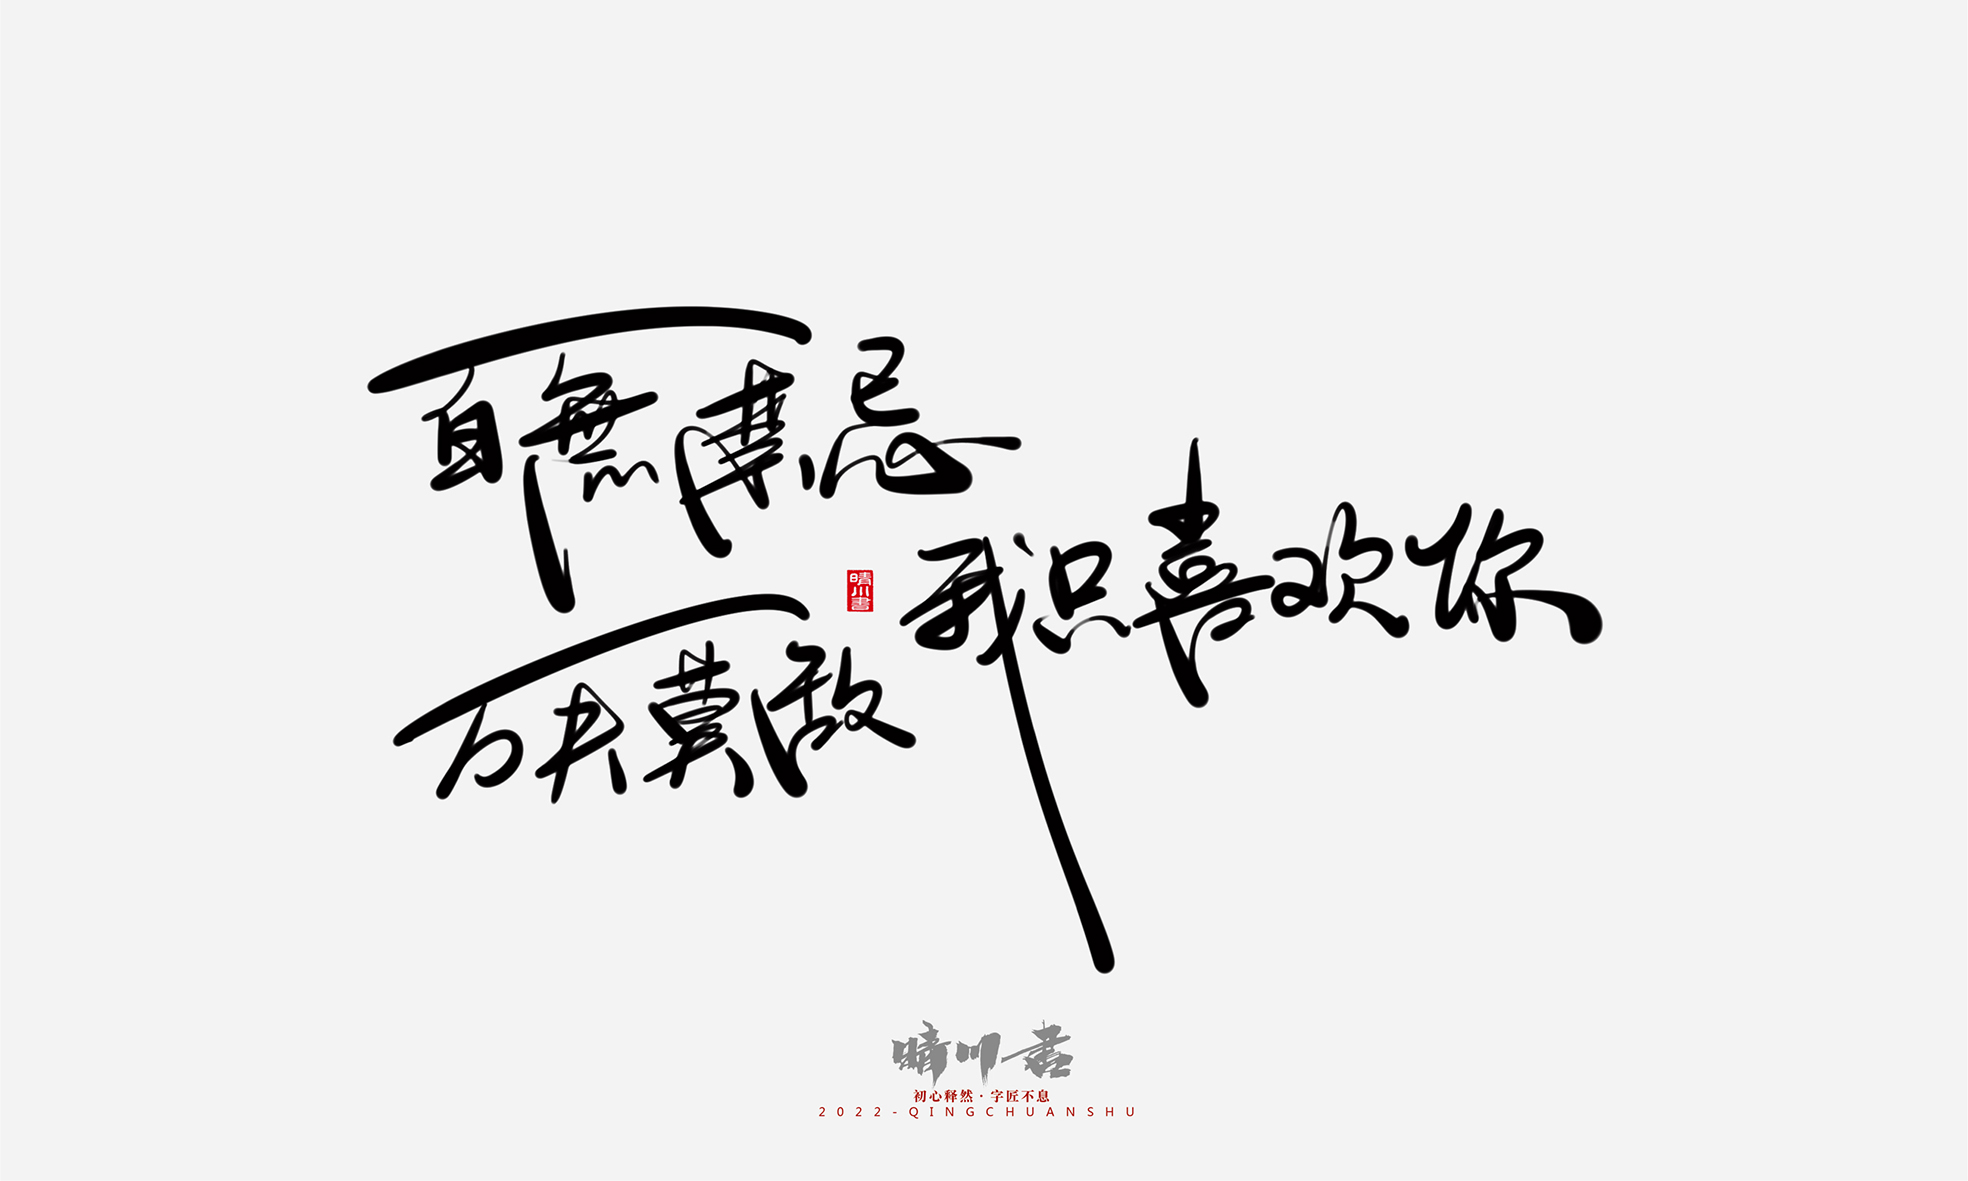 百無禁忌
万夫莫敌
我只喜欢你
晴川書
晴川书
初心释然·字匠不息
2022-QINGCHUANSHU